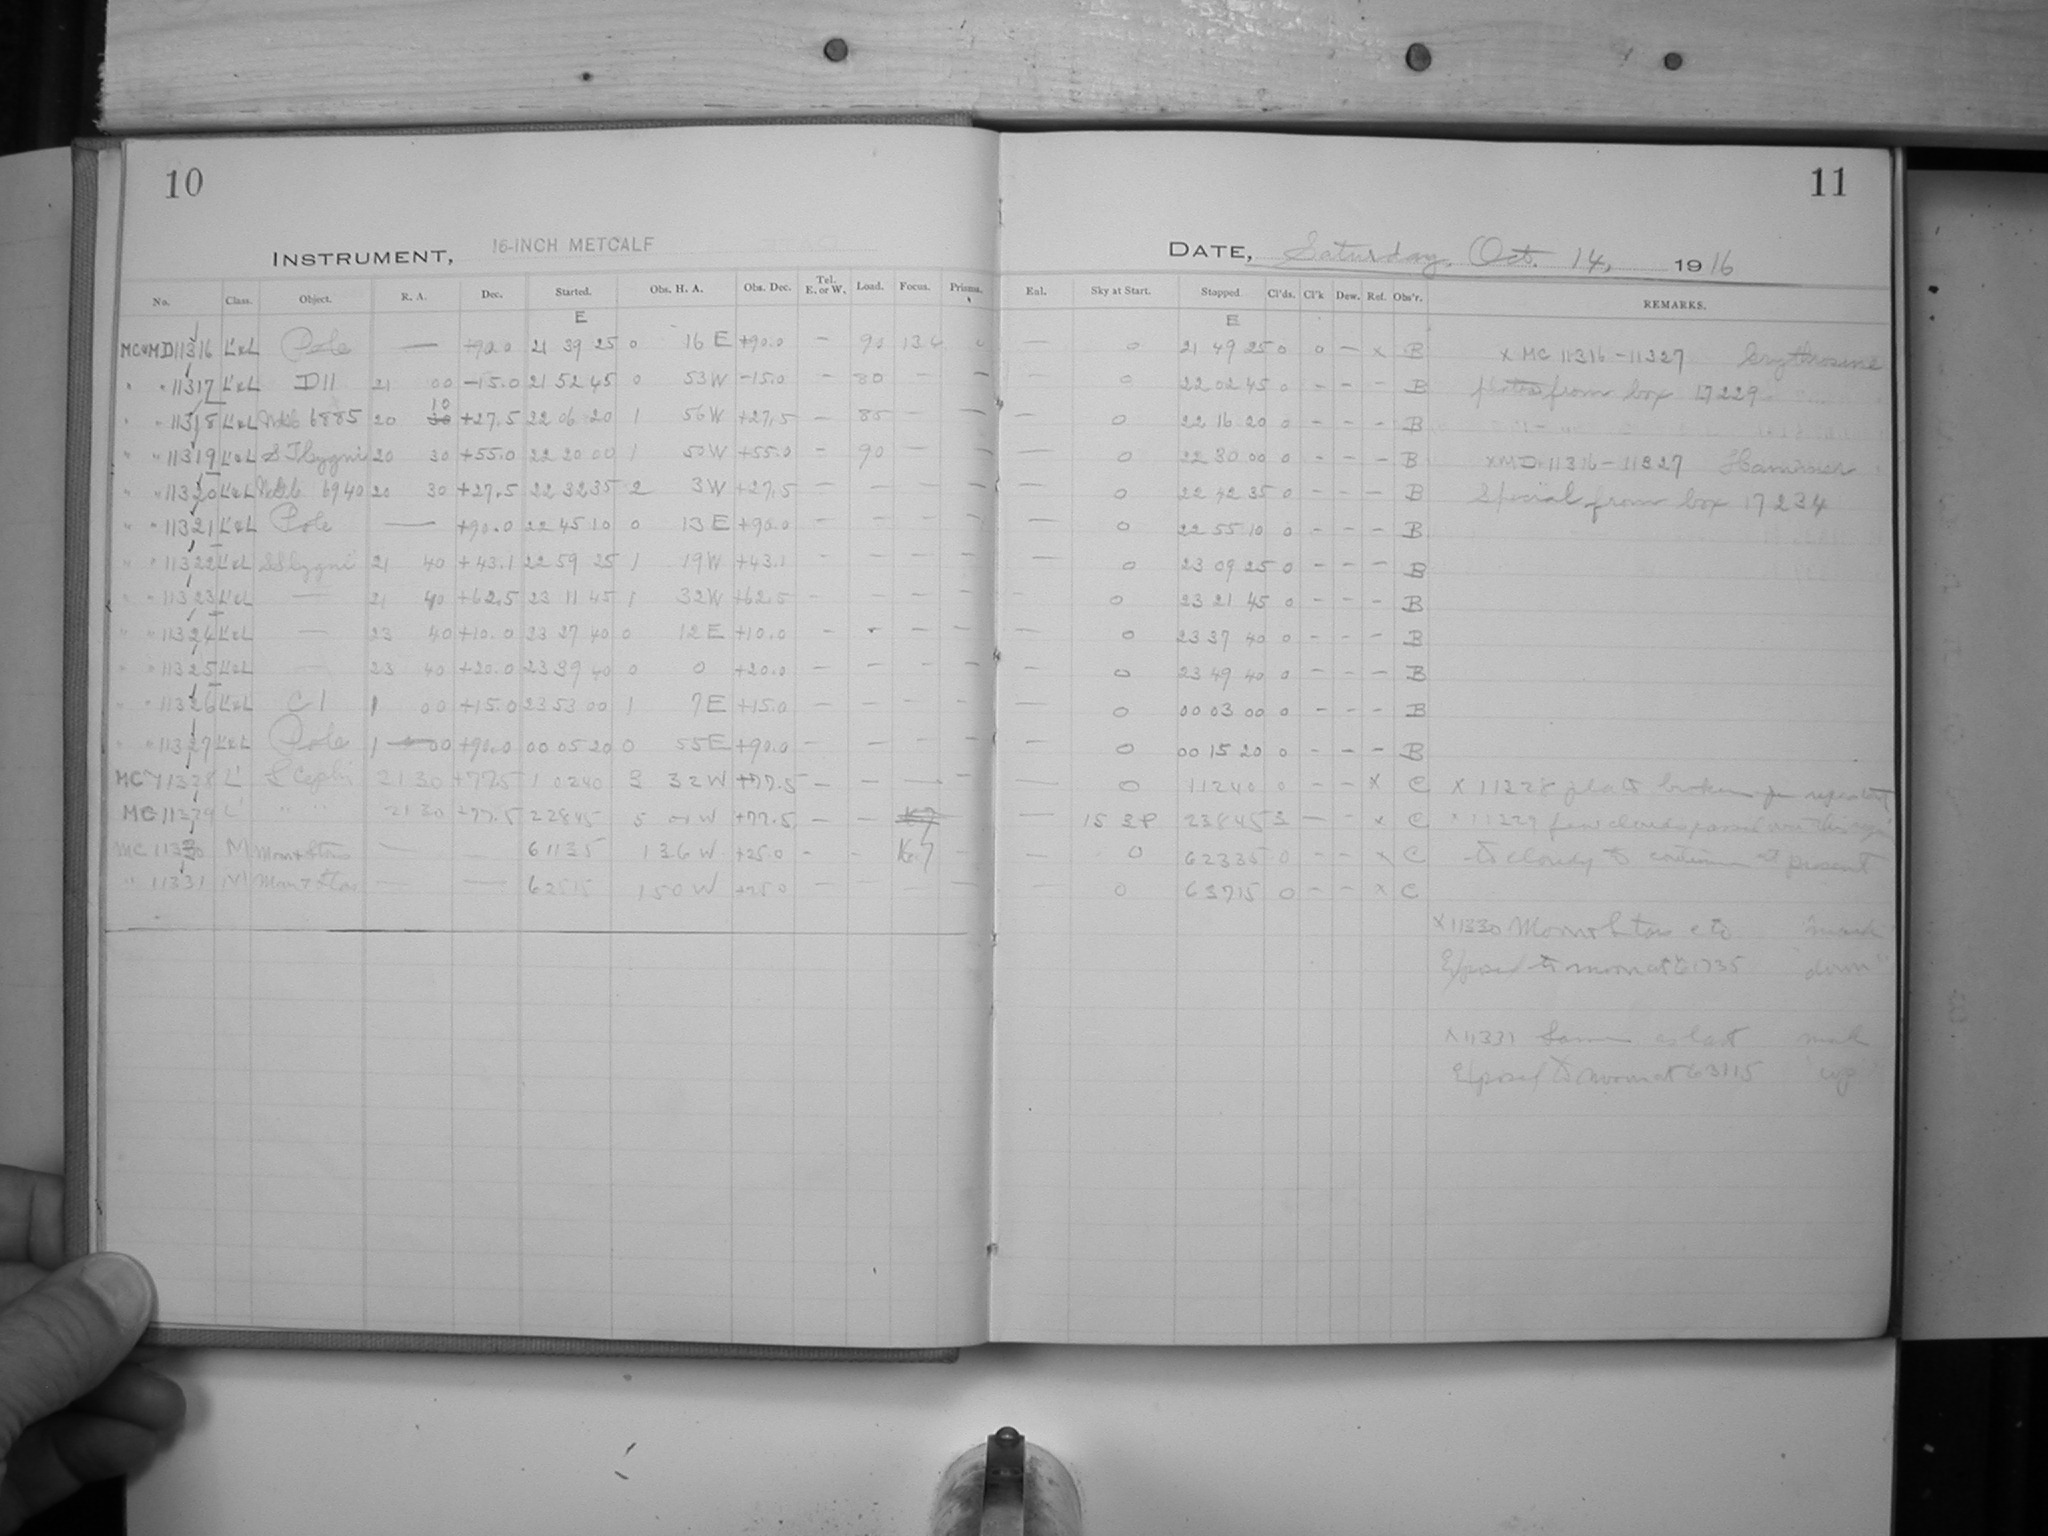 10
INSTRUMENT, 16-INCH METCALF
No. Class. Object. R. A. Dec. Started. Obs. H. A. Obs. Dec. Tel. E. or W. Load. Focus. Prisms.
E
MC&MD 11316 L'&L Pole — +90.0 21 39 25 0 16 E +90.0 - 90 13.6
" " 11317 L'&L D11 21 00 -15.0 21 52 45 0 53 W -15.0 - 80 - -
" " 11318 L'&L 6885 20 10 +27.5 22 06 20 1 56 W +27.5 - 85 -
" " 11319 L'&L 20 30 +55.0 22 20 00 1 50 W +55.0 - 90 - -
" " 11320 L'&L 6940 20 30 +27.5 22 32 35 2 3 W +27.5 - - - -
" " 11321 L'&L Pole — +90.0 22 45 10 0 13 E +90.0 - - - -
" " 11322 L'&L 21 40 +43.1 22 59 25 1 19 W +43.1 - - - -
" " 11323 L'&L — 21 40 +62.5 23 11 45 1 32 W +62.5 - - - -
" " 11324 L'&L — 23 40 +10.0 23 27 40 0 12 E +10.0 - - - -
" " 11325 L'&L — 23 40 +20.0 23 39 40 0 0 +20.0 - - - -
" " 11326 L'&L C1 1 00 +15.0 23 53 00 1 7 E +15.0 - - - -
" " 11327 L'&L Pole 1 00 +90.0 00 05 20 0 55 E +90.0 - - - -
MC 11328 L' S Cephi 21 30 +77.5 1 02 40 3 32 W +77.5 - - - -
MC 11329 L' " " 21 30 +77.5 2 28 45 5 W +77.5 - -
MC 11330 M Moon & Stars — — 6 11 35 1 36 W +25.0 - - 16.7
" 11331 M Moon & Stars — — 6 25 15 1 50 W +25.0 - - - -
11
DATE, Saturday, Oct. 14, 1916
Eal. Sky at Start. Stopped Cl'ds. Cl'k Dew. Ref. Obs'r. REMARKS.
E
— 0 21 49 25 0 0 - x B x MC 11316-11327 Erythrosine
— 0 22 02 45 0 - - - B plates from box 17229
— 0 22 16 20 0 - - - B
— 0 22 30 00 0 - - - B x MD 11316-11327 Hammer
— 0 22 42 35 0 - - - B Special from box 17234
— 0 22 55 10 0 - - - B
— 0 23 09 25 0 - - - B
— 0 23 21 45 0 - - - B
— 0 23 37 40 0 - - - B
— 0 23 49 40 0 - - - B
— 0 00 03 00 0 - - - B
— 0 00 15 20 0 - - - B
— 0 1 12 40 0 - - x C x 11328 plate broken
— 15 3P 2 38 45 3 - - x C x 11329 few clouds passed over this region
— 0 6 23 35 0 - - x C - to cloudy to continue at present
— 0 6 37 15 0 - - x C
x 11330 Moon & Stars etc "mask
Exposed to moon at 6 17 35 down"
x 11331 Same as last mask
Exposed to moon at 6 31 15 "up"